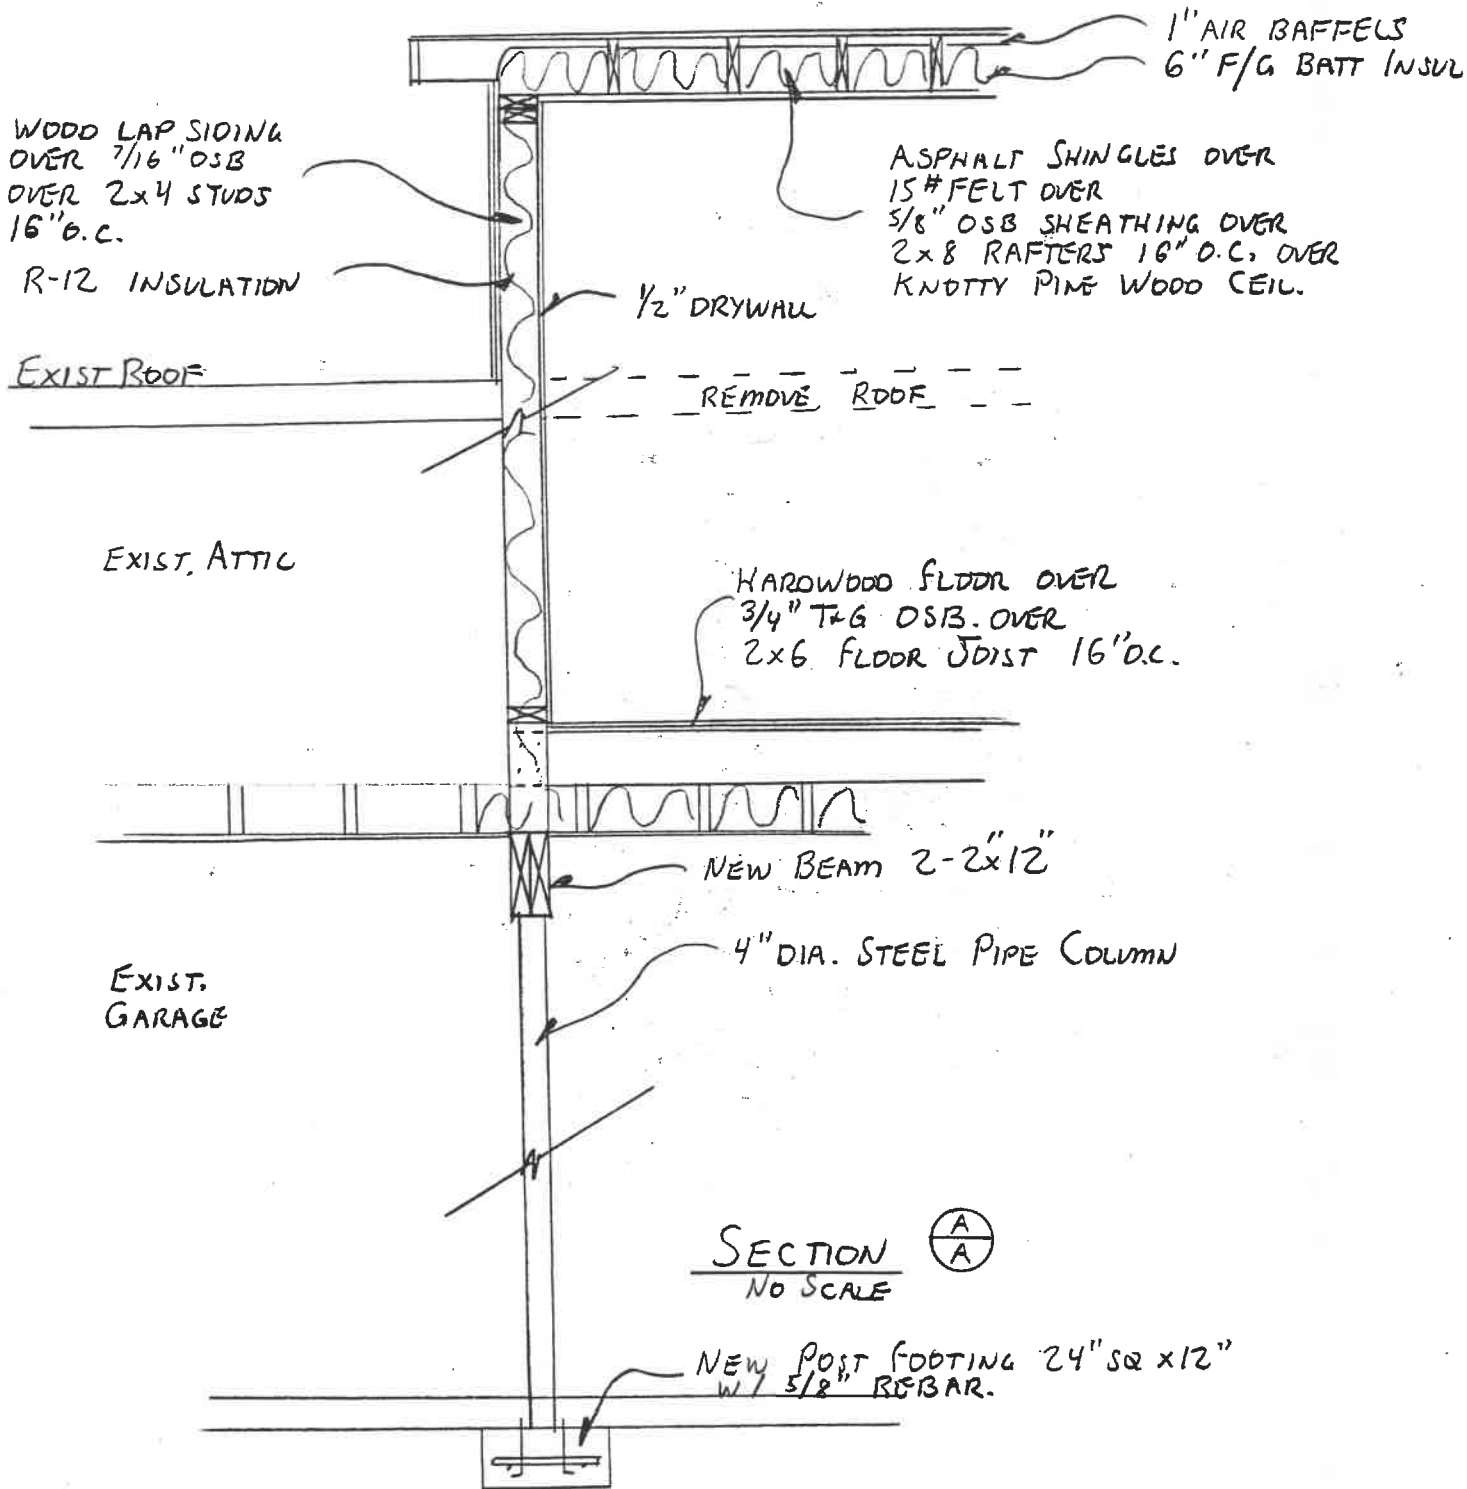 1" AIR BAFFELS
6" F/G BATT INSUL
WOOD LAP SIDING
OVER 7/16" OSB
OVER 2x4 STUDS
16" O.C.
R-12 INSULATION
ASPHALT SHINGLES OVER
15# FELT OVER
5/8" OSB SHEATHING OVER
2x8 RAFTERS 16" O.C. OVER
KNOTTY PINE WOOD CEIL.
1/2" DRYWALL
EXIST ROOF
REMOVE ROOF
EXIST. ATTIC
HARDWOOD FLOOR OVER
3/4" T&G OSB. OVER
2x6 FLOOR JOIST 16" O.C.
NEW BEAM 2-2"x12"
4" DIA. STEEL PIPE COLUMN
EXIST.
GARAGE
SECTION
NO SCALE
A
A
NEW POST FOOTING 24" SQ x 12"
W/ 5/8" REBAR.